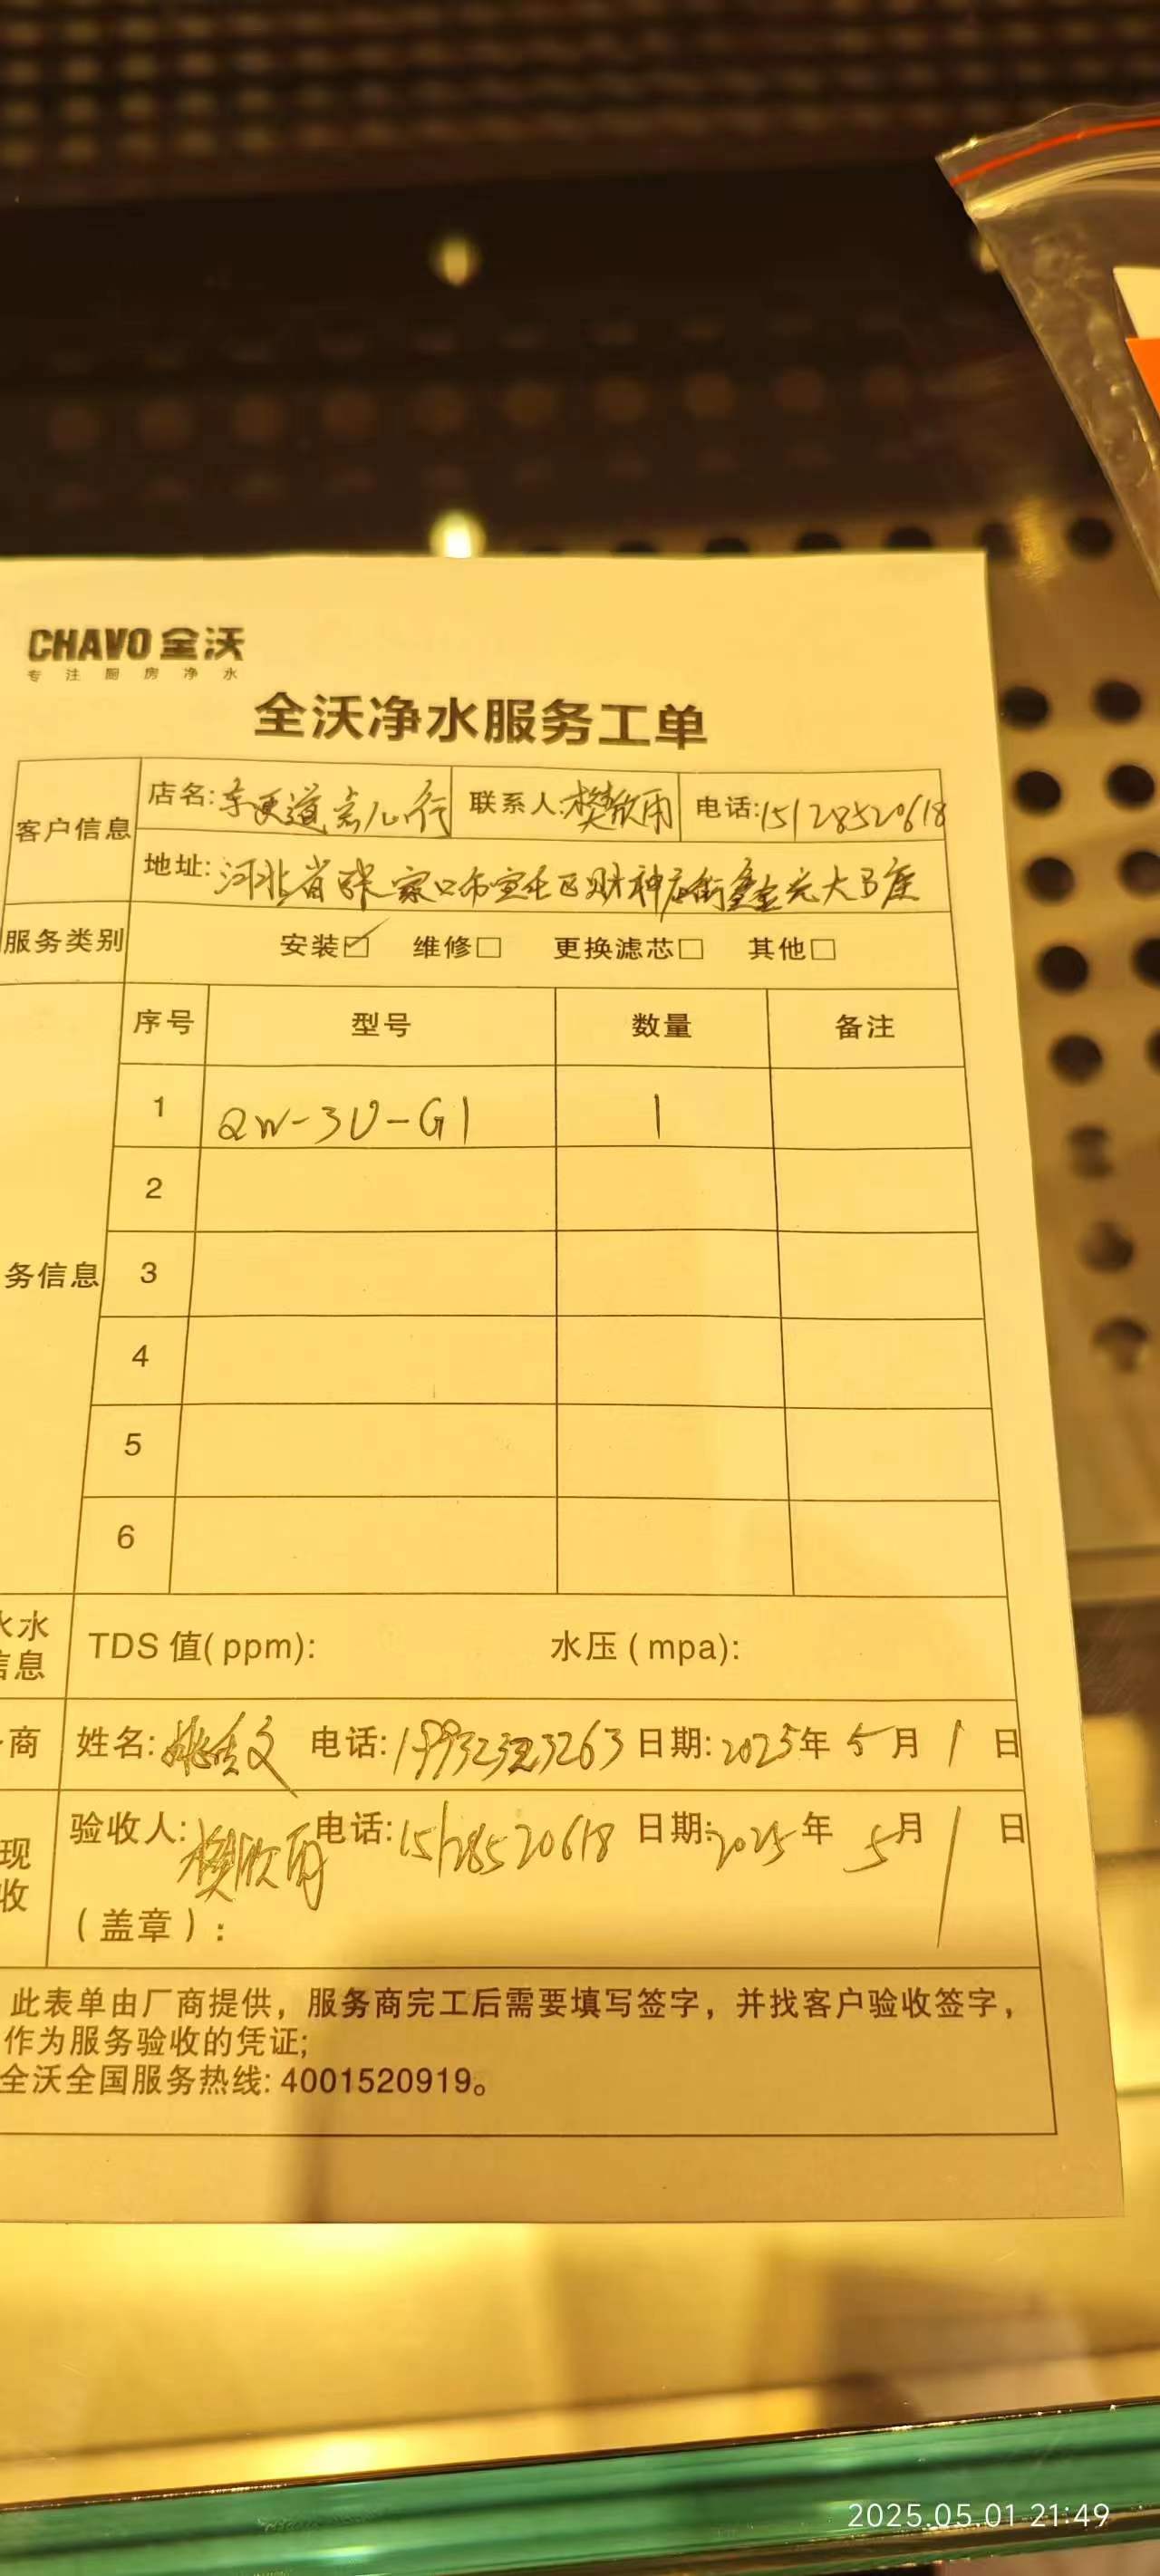 CHAVO 全沃
专注厨房净水
全沃净水服务工单
客户信息
店名: 联系人:樊欣雨 电话:15128520618
地址:河北省张家口市宣化区财神庙街鑫
服务类别 安装☑ 维修□ 更换滤芯□ 其他□
序号 型号 数量 备注
1 QW-3U-G1 1
2
务信息 3
4
5
6
水水
信息
TDS 值(ppm): 水压(mpa):
商 姓名: 文 电话: 日期:2025年5月1日
现
收
验收人:樊欣雨 电话:15128520618 日期:2025年5月1日
(盖章):
此表单由厂商提供,服务商完工后需要填写签字,并找客户验收签字,
作为服务验收的凭证;
全沃全国服务热线:4001520919。
2025.05.01 21:49